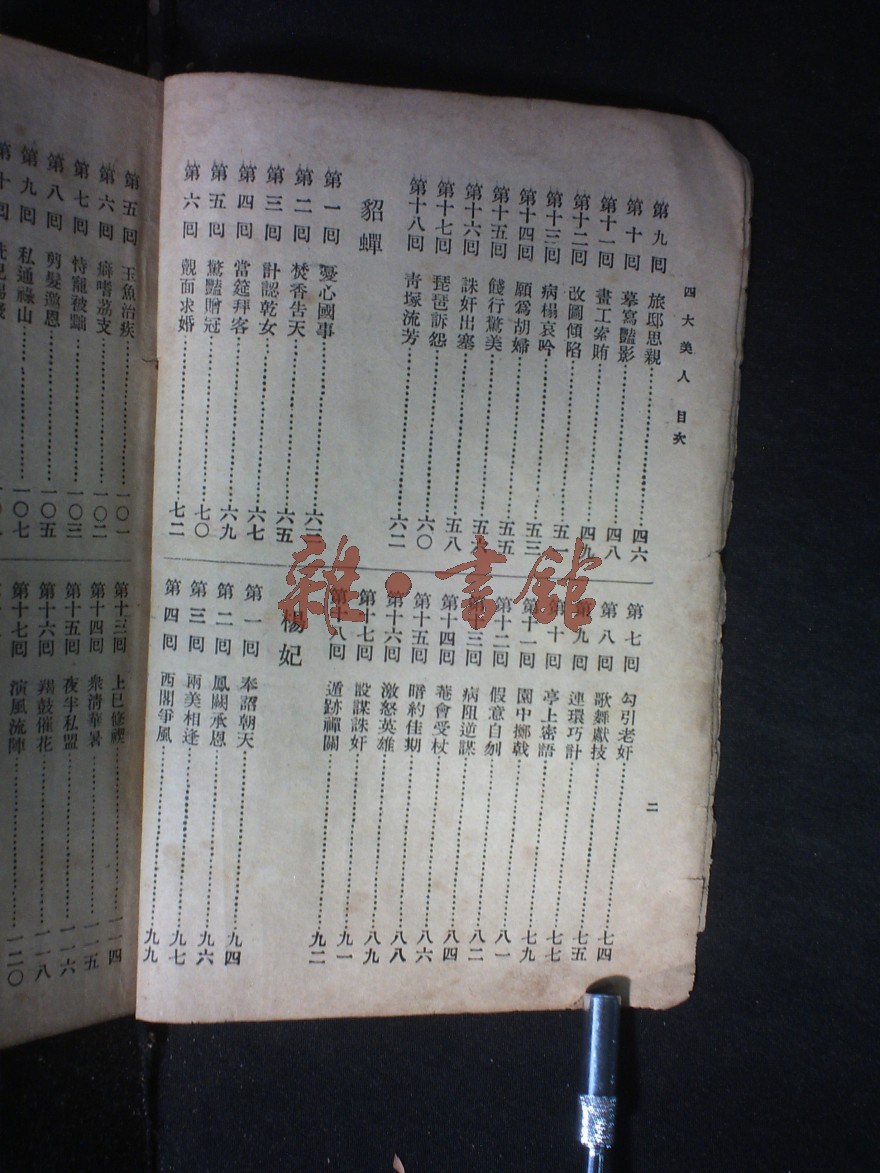 四大美人　目次
二
第九囘　旅邸思親……四六
第十囘　摹寫豔影……四八
第十一囘　畫工索賄……四九
第十二囘　改圖傾陷……五一
第十三囘　病榻哀吟……五三
第十四囘　願爲胡婦……五五
第十五囘　餞行驚美……五五
第十六囘　誅奸出塞……五八
第十七囘　琵琶訴怨……六〇
第十八囘　靑塚流芳……六二
貂蟬
第一囘　憂心國事……六三
第二囘　焚香告天……六五
第三囘　計認乾女……六七
第四囘　當筵拜客……六九
第五囘　驚豔贈冠……七〇
第六囘　覿面求婚……七二
第七囘　勾引老奸……七四
第八囘　歌舞獻技……七五
第九囘　連環巧計……七七
第十囘　亭上密語……七九
第十一囘　園中擲戟……八一
第十二囘　假意自刎……八二
第十三囘　病阻逆謀……八四
第十四囘　菴會受杖……八六
第十五囘　暗約佳期……八八
第十六囘　激怒英雄……八九
第十七囘　設謀誅奸……九一
第十八囘　遁跡禪關……九二
楊妃
第一囘　奉詔朝天……九四
第二囘　鳳闕承恩……九六
第三囘　兩美相逢……九七
第四囘　西閣爭風……九九
第五囘　玉魚治疾……一〇一
第六囘　癖嗜荔支……一〇二
第七囘　恃寵被黜……一〇三
第八囘　剪髮邀恩……一〇五
第九囘　私通祿山……一〇七
第十囘
第十三囘　上巳修禊……一一四
第十四囘　衆淸華暑……一一五
第十五囘　夜半私盟……一一六
第十六囘　羯鼓催花……一一八
第十七囘　演風流陣……一二〇
雜·書館